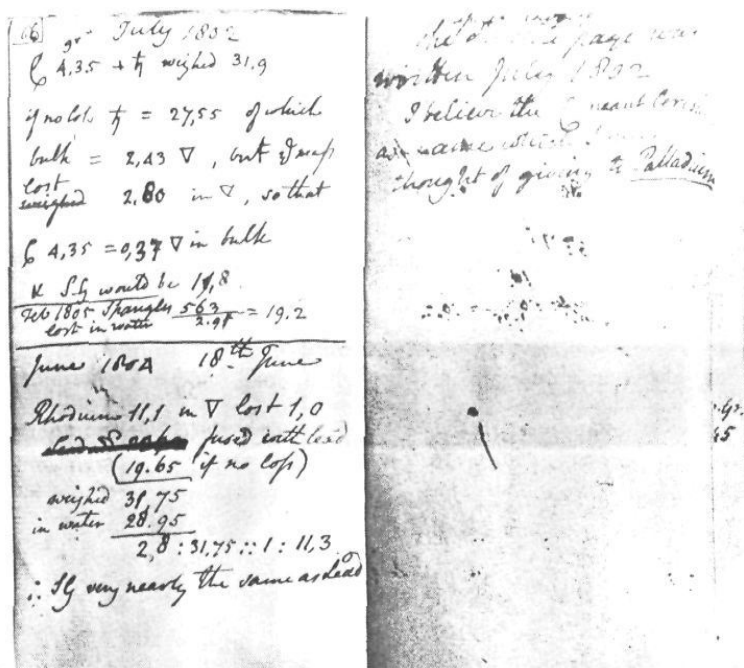 66 July 1802
gr
C 4,35 + ♄ weighed 31.9
if no loss ♄ = 27,55 of which
bulk = 2,43 ∇, but ye mass
lost
weighed 2.80 in ∇, so that
C 4,35 = 0,37 ∇ in bulk
& S.G would be 11,8
Feb 1805 Spangles 563 / 2.91 = 19.2
lost in water
June 1804 18th June
Rhodium 11,1 in ∇ lost 1,0
fused with lead
(19.65 if no loss)
weighed 31,75
in water 28.95
2,8 : 31,75 :: 1 : 11,3
∴ SG very nearly the same as Lead
page was
written July 1802
I believe the C meant Ceresium
a name which I once
thought of giving to Palladium